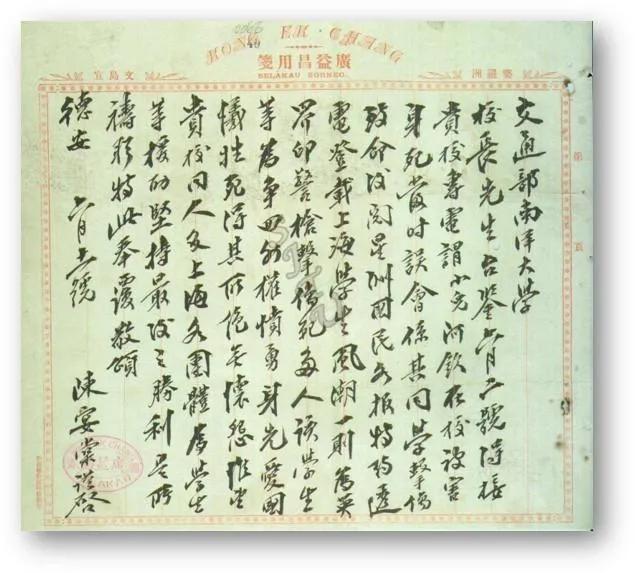 HONG EK CHANG
廣益昌用箋
BELAKAU BORNEO.
婆羅洲
文島宜
交通部南洋大学
校長先生台鉴六月二號得接
貴校專電謂小兒欽在校被害
身死當时誤會係其同学擊傷
致命後閲星洲國民各报特约透
電登載上海學生風潮一則為英
界印警槍擊傷死多人該學生
等為爭回權憤勇身先愛國
犧牲死得其所绝無懷怨惟望
貴校同人及上海各團體為學生
等援助堅持最後之勝利是所
禱特此奉覆敬頌
德安 六月號
陳宴棠謹啓